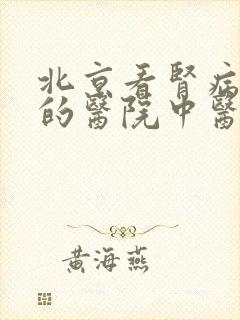 北京看腎病
的醫院中醫
黃海燕